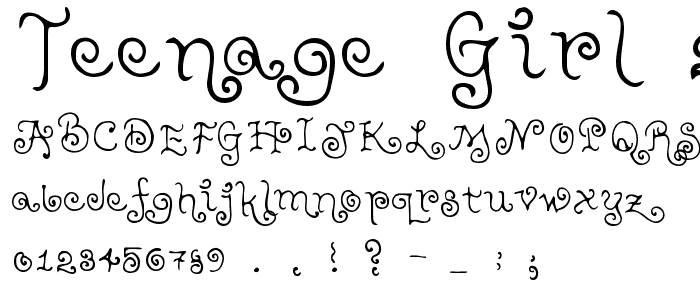 Teenage Girl
ABCDEFGHIJKLMNOPQRS
abcdefghijklmnopqrstuvwxyz
0123456789 . , ! ? - _ : ;